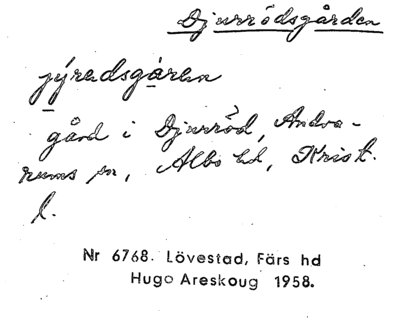 Djurrödsgården
jýradsgáren
gård i Djurröd, Andra-
rums sn, Albo hd, Krist.
l.
Nr 6768. Lövestad, Färs hd
Hugo Areskoug 1958.